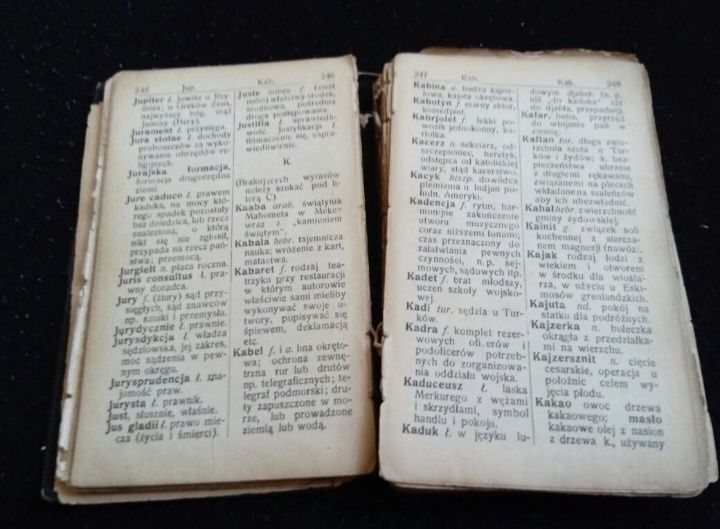 245 Jup.
Jupiter ł. Jowisz u Rzy-
mian, u Greków Zeus,
najwyższy bóg, mąż
Junony (Hery).
Jurament ł. przysięga.
Jura stolae ł. dochody
proboszczów za wyko-
nywanie obrzędów re-
ligijnych.
Jurajska formacja,
formacja drugorzędna
ziemi.
Jure caduco ł. prawem
kaduka, na mocy któ-
rego spadek pozostały
bez dziedzica, lub rzecz
znaleziona, o którą
nikt się nie zgłosił,
przypada na rzecz pań-
stwa; przemocą.
Jurgielt n. płaca roczna.
Juris consultus ł. pra-
wny doradca.
Jury f. (żiury) sąd przy-
sięgłych, sąd znawców
np. sztuki i przemysłu.
Jurydycznie ł. prawnie.
Jurysdykcja ł. władza
sędziowska, jej zakres,
moc sądzenia w pew-
nym okręgu.
Jurysprudencja ł. zna-
jomość praw.
Jurysta ł. prawnik.
Just, słusznie, właśnie.
Jus gladii ł. prawo mie-
cza (życia i śmierci).
Kab. 246
Juste milieu f. (żust
milio) właściwy środek,
środkowa, pośrednia
droga postępowania.
Justitia ł. sprawiedli-
wość. Justyfikacja ł.
tłomaczenie się, uspra-
wiedliwienie.
K.
(Brakujących wyrazów
należy szukać pod li-
terą C)
Kaaba arab. świątynia
Mahometa w Mekce
wraz z „kamieniem
świętym".
Kabała hebr. tajemnicza
nauka; wróżenie z kart,
matactwa.
Kabaret f. rodzaj tea-
trzyku przy restauracji
w którym autorowie
właściwie sami mieliby
wykonywać swoje u-
twory, popisywać się
śpiewem, deklamacją
etc.
Kabel f. i a. lina okręto-
wa; ochrona zewnę-
trzna rur lub drutów
np. telegraficznych; te-
legraf podmorski; dru-
ty zapuszczone w mo-
rze, lub prowadzone
ziemią lub wodą.
247 Kab.
Kabina a. budka kąpie-
lowa, kajuta okrętowa.
Kabotyn f. marny aktor,
komedjant.
Kabrjolet f. lekki po-
wozik jednokonny, ka-
riolka.
Kacerz n. sekciarz, od-
szczepieniec, heretyk,
odstępca od katolickiej
wiary, stąd kacerstwo.
Kacyk hiszp. dowódca
plemienia u Indjan po-
łudn. Ameryki.
Kadencja f. rytm, har-
monijne zakończenie
utworu muzycznego
coraz niższemi tonami;
czas przeznaczony do
załatwiania pewnych
czynności, n.p. sej-
mowych, sądowych itp.
Kadet f. brat młodszy,
uczeń szkoły wojsko-
wej.
Kadi tur. sędzia u Tur-
ków.
Kadra f. komplet rezer-
wowych oficerów i
podoficerów potrzeb-
ny do zorganizowa-
nia oddziału wojska.
Kaduceusz ł. laska
Merkurego z wężami
i skrzydłami, symbol
handlu i pokoju.
Kaduk ł. w języku lu-
Kak. 248
dowym djabeł. (n. p.
idź „do kaduka" idź
do djabła, przepadnij).
Kafar, baba, przyrząd
do wbijania pali w
ziemię.
Kaftan tur. długa zwie-
rzchnia szata u Tur-
ków i żydów; k. bez-
pieczeństwa ubranie
z długiemi rękawami,
związanemi na plecach
wkładane na szaleńców
aby ich ubezwładnić.
Kahał hebr. zwierzchność
gminy żydowskiej.
Kainit g. związek soli
kuchennej z siarcza-
nem magnezji (nawóz).
Kajak rodzaj łodzi z
wiekiem i otworem
w środku dla wiośla-
rza, w użyciu u Eski-
mosów grenlandzkich.
Kajuta nd. pokój na
statku dla podróżnych.
Kajzerka n. bułeczka
okrągła z przedziałka-
mi na wierzchu.
Kajzersznit n. cięcie
cesarskie, operacja u
położnic celem wy-
jęcia płodu.
Kakao owoc drzewa
kakaowego; masło
kakaowe olej z nasion
z drzewa k., używany